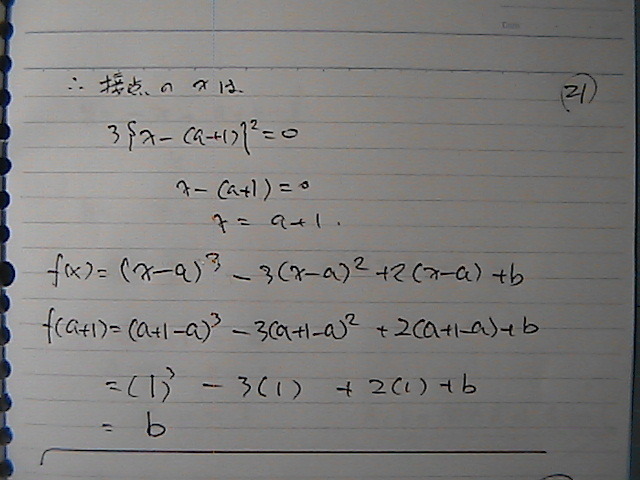 ∴ 接点の xは
(21)
3{x-(a+1)}²=0
x-(a+1)=0
x= a+1.
f(x)=(x-a)³ -3(x-a)²+2(x-a)+b
f(a+1)=(a+1-a)³ -3(a+1-a)² +2(a+1-a)+b
=(1)³ -3(1) +2(1)+b
= b